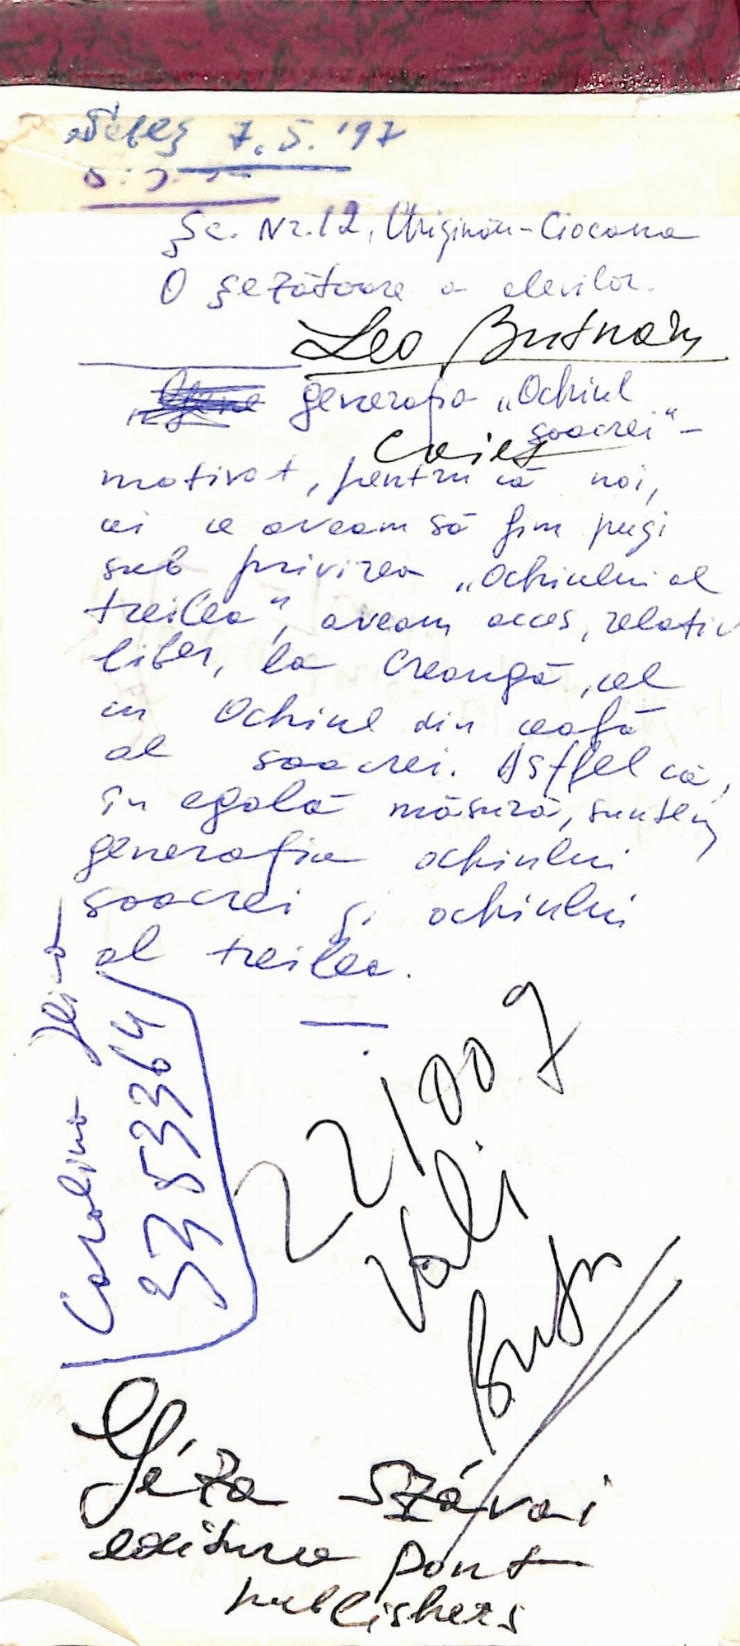 7.5.'97
Șc. Nr. 12, Chișinău-Ciocana
O șezătoare a elevilor.
Leo Butnaru
Caiet
generația „Ochiul
soacrei" –
motivat, pentru că noi,
cei ce aveam să fim puși
sub privirea „ochiului al
treilea", aveam acces, relativ
liber, la Creangă, cel
cu Ochiul din ceafă
al soacrei. Astfel că,
în egală măsură, suntem
generația ochiului
soacrei și ochiului
al treilea.
Carolina
3353364
221009
Vali
But
Géza Szávai
editura Pont
publishers